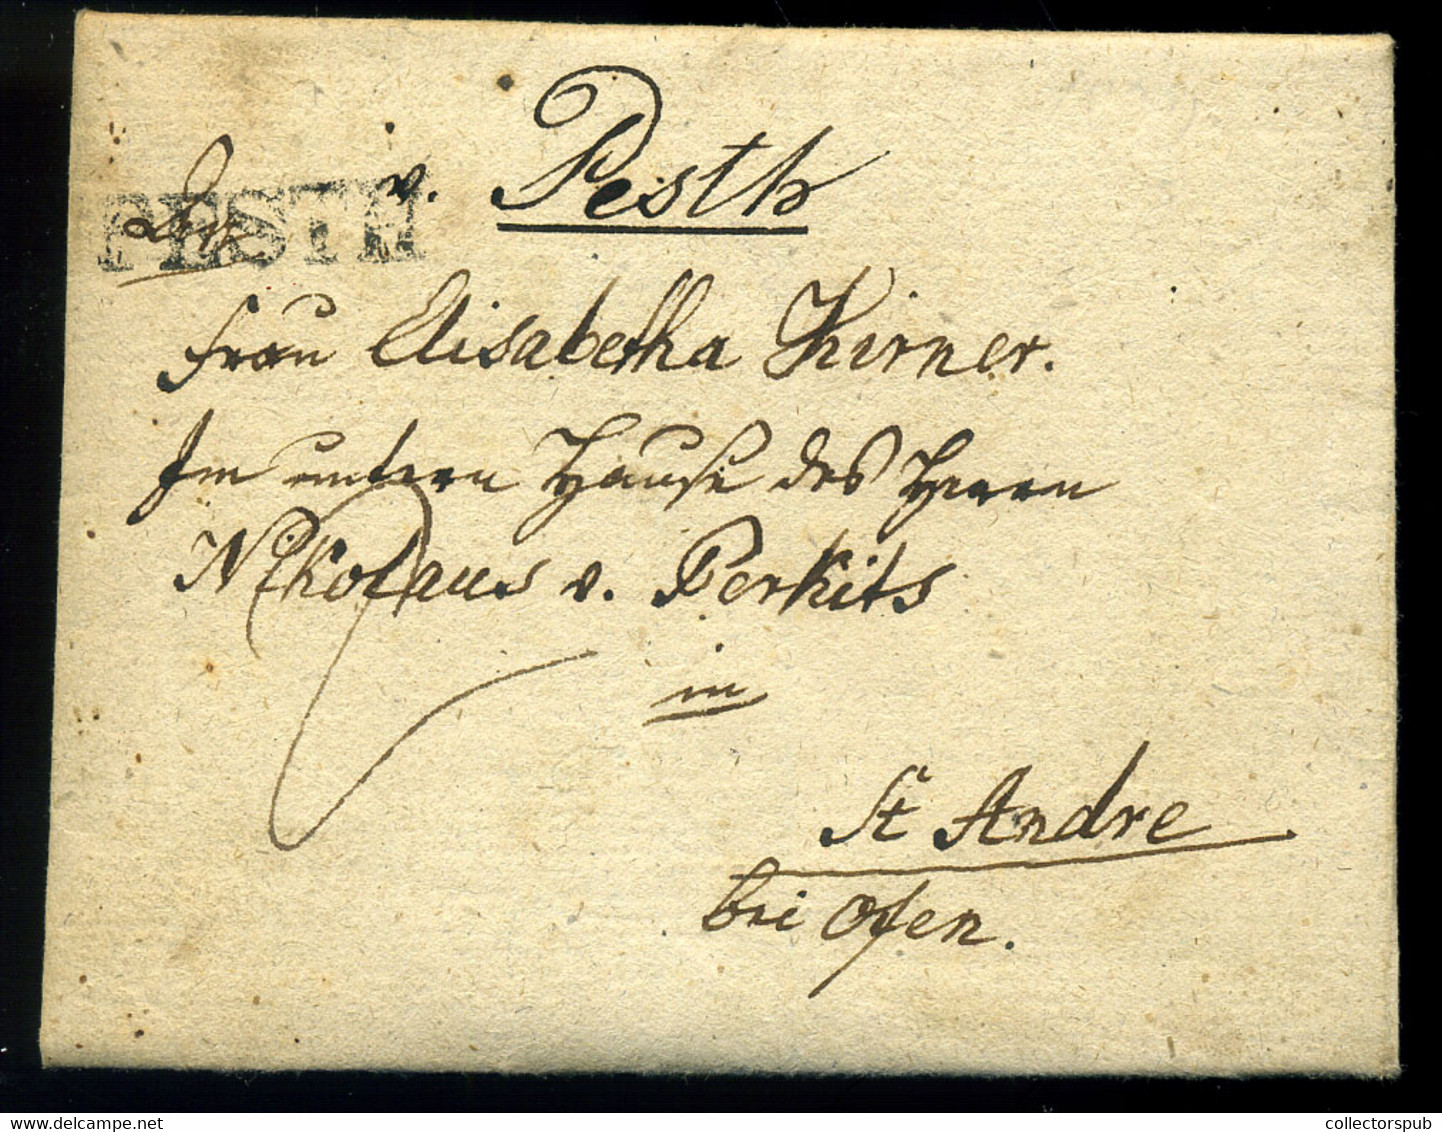 v. Pesth
PESTH
Frau Elisabetha Kirner.
Im untern Hause des Herrn
Nikolaus v. Berkits
in
St Andre
bei Ofen.
www.delcampe.net
collectorspub